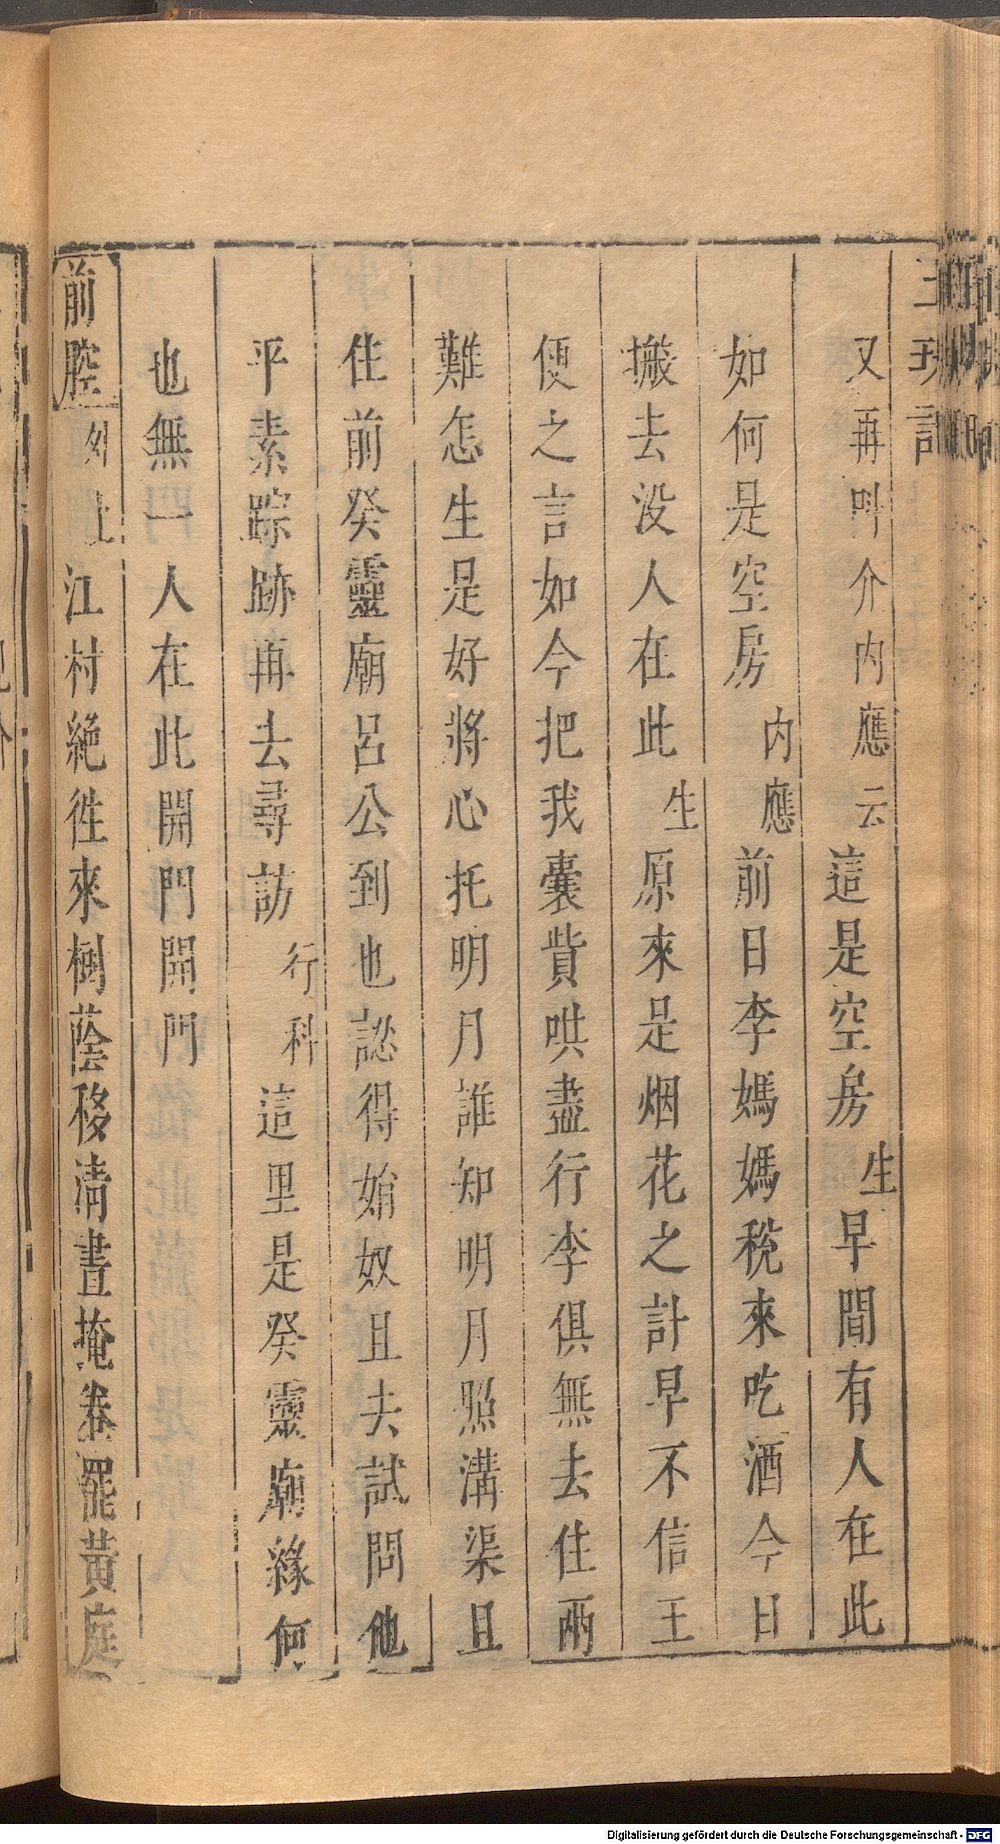 玉玦記
又再叫介內應云這是空房生早間有人在此
如何是空房內應前日李媽媽稅來吃酒今日
搬去没人在此生原來是烟花之計早不信王
便之言如今把我囊貲哄盡行李俱無去住兩
難怎生是好將心托明月誰知明月照溝渠且
住前癸靈廟呂公到也認得媋奴且去試問他
平素踪跡再去尋訪行科這里是癸靈廟緣何
也無一人在此開門開門
前腔外上江村絕徃來樹蔭移清晝掩卷罷黃庭
Digitalisierung gefördert durch die Deutsche Forschungsgemeinschaft - DFG